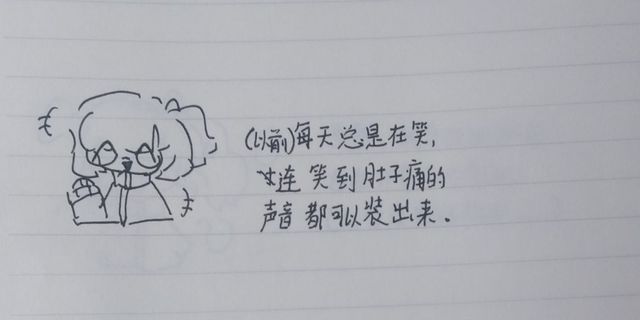 (以前)每天总是在笑,
连笑到肚子痛的
声音都可以装出来.